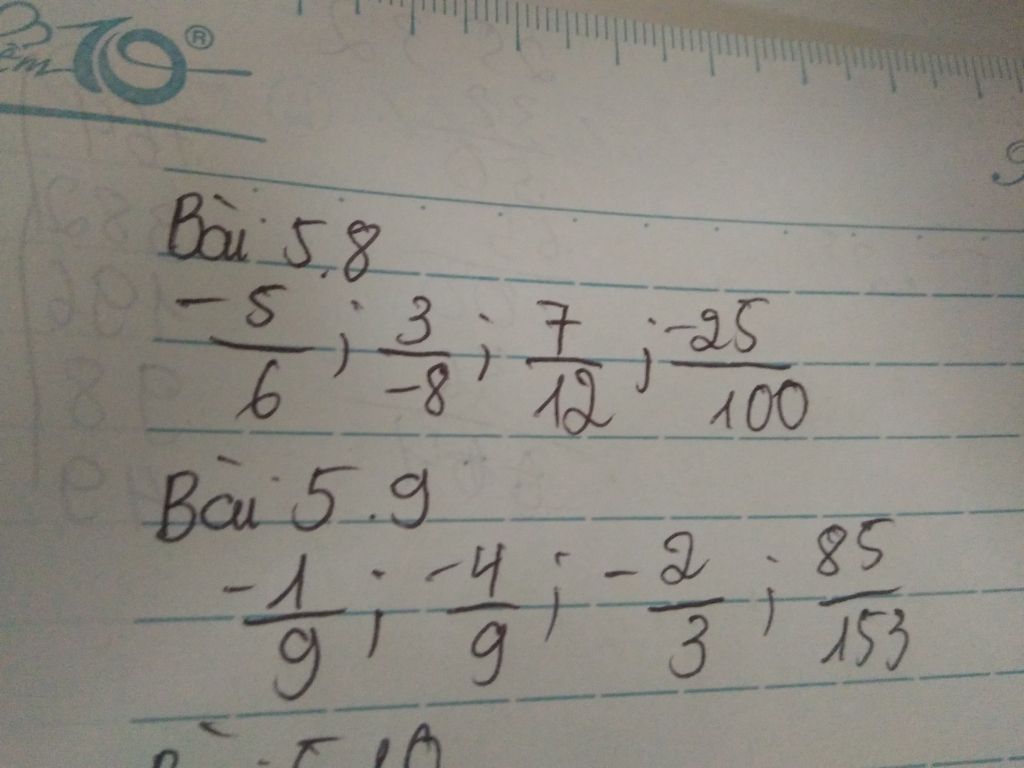 10®
Bài 5.8
-5/6 ; 3/-8 ; 7/12 ; -25/100
Bài 5.9
-1/9 ; -4/9 ; -2/3 ; 85/153